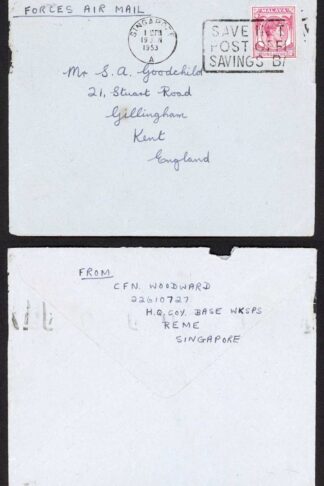 FORCES AIR MAIL
SINGAPORE
19 JUN
1953
A
SAVE
POST OFF
SAVINGS BA
MALAYA
Mr S. A. Goodchild
21, Stuart Road
Gillingham
Kent
England
FROM
CFN. WOODWARD
22610727
H.Q. COY. BASE WKSPS
REME
SINGAPORE